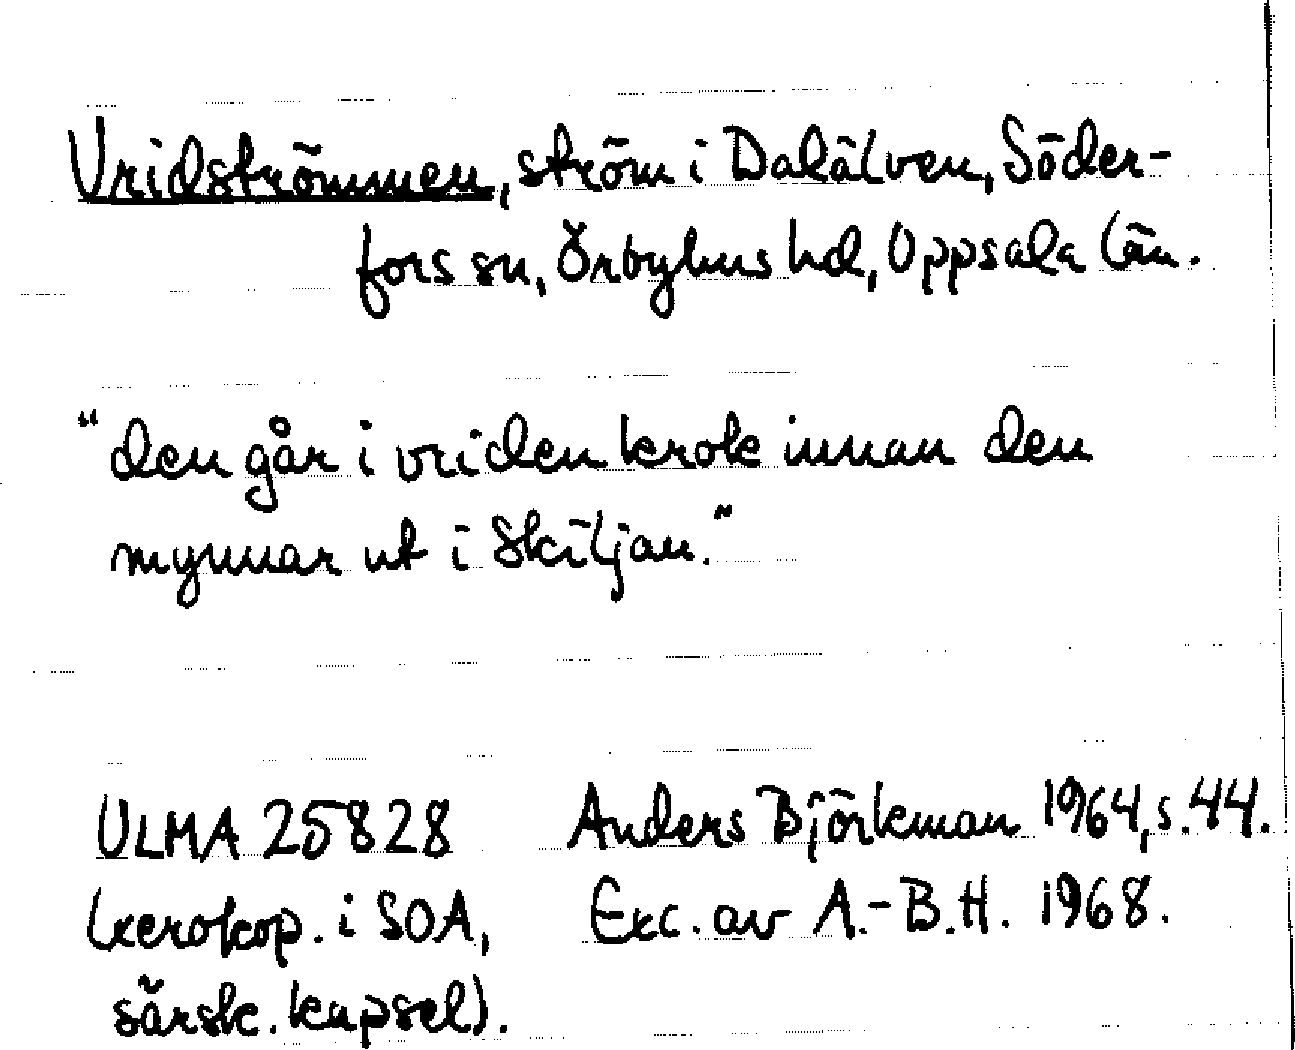 Vridströmmen, ström i Dalälven, Söder-
fors sn, Örbyhus hd, Uppsala län.
"den går i vriden krok innan den
mynnar ut i Skiljan."
ULMA 25828 Anders Björkman 1964, s. 44.
(xerokop. i SOA, Exc. av A.-B.H. 1968.
särsk. kapsel).